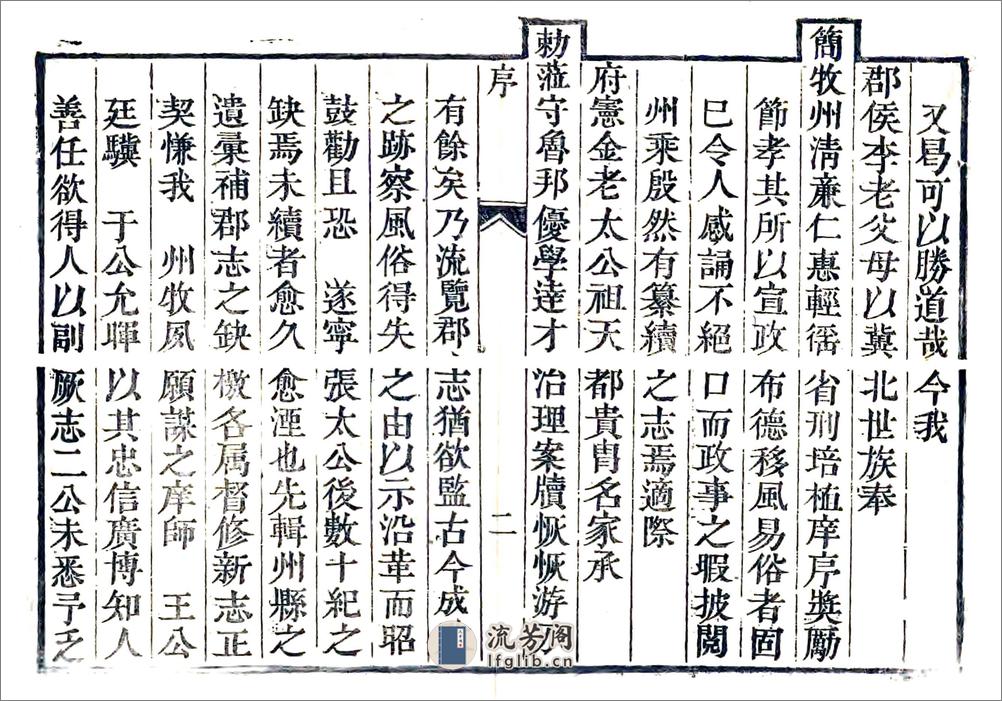 又曷可以勝道哉今我
郡侯李老父母以冀北世族奉
簡牧州清廉仁惠輕徭省刑培植庠序獎勵
節孝其所以宣政布德移風易俗者固
已令人感誦不絕口而政事之暇披閱
州乘殷然有纂續之志焉適際
府憲金老太公祖天都貴胄名家承
勅蒞守魯邦優學達才治理案牘恢恢游刃
序 二
有餘矣乃流覽郡志猶欲監古今成
之跡察風俗得失之由以示沿革而昭
鼓勸且恐 遂寧張太公後數十紀之
缺焉未續者愈久愈湮也先輯州縣之
遺彙補郡志之缺檄各属督修新志正
契慊我 州牧夙願謀之庠師 王公
廷驥 于公允暉以其忠信廣博知人
善任欲得人以副厥志二公未悉予之
流芳阁
lfglib.cn